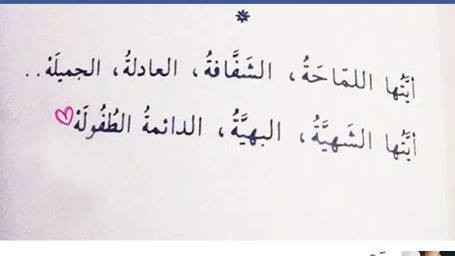 أيَّتُها اللمّاحَةُ، الشَفَّافةُ، العادلةُ، الجميلَهْ..
أيَّتُها الشَهيَّةُ، البهيَّةُ، الدائمةُ الطُفُولَهْ